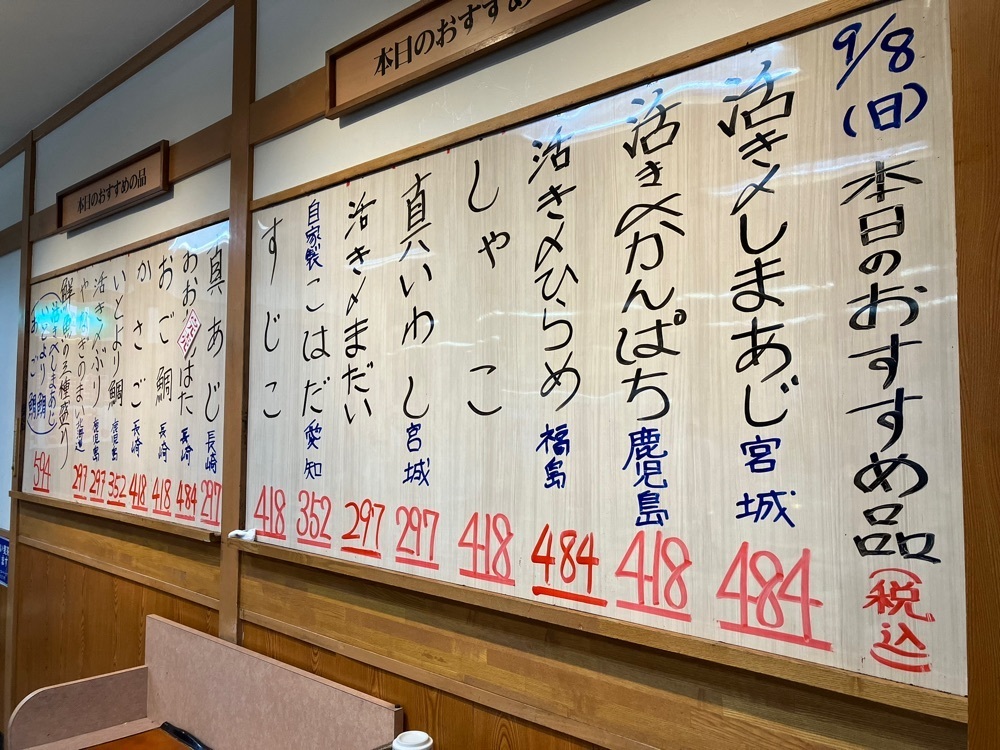 本日のおすすめ
9/8
(日)
本日のおすすめ品(税込)
活き〆しまあじ 宮城 484
活き〆かんぱち 鹿児島 418
活き〆ひらめ 福島 484
しゃこ 418
真いわし 宮城 297
活き〆まだい 297
自家製こはだ 愛知 352
すじこ 418
本日のおすすめの品
真あじ 長崎 297
おお はた 長崎 484
おご鯛 長崎 418
かさご 長崎 418
いとより鯛 鹿児島 352
活き〆ぶり 鹿児島 297
やなぎのまい 北海道 297
鮮魚の三種盛り
活き〆しまあじ
いとより鯛
おご鯛
594